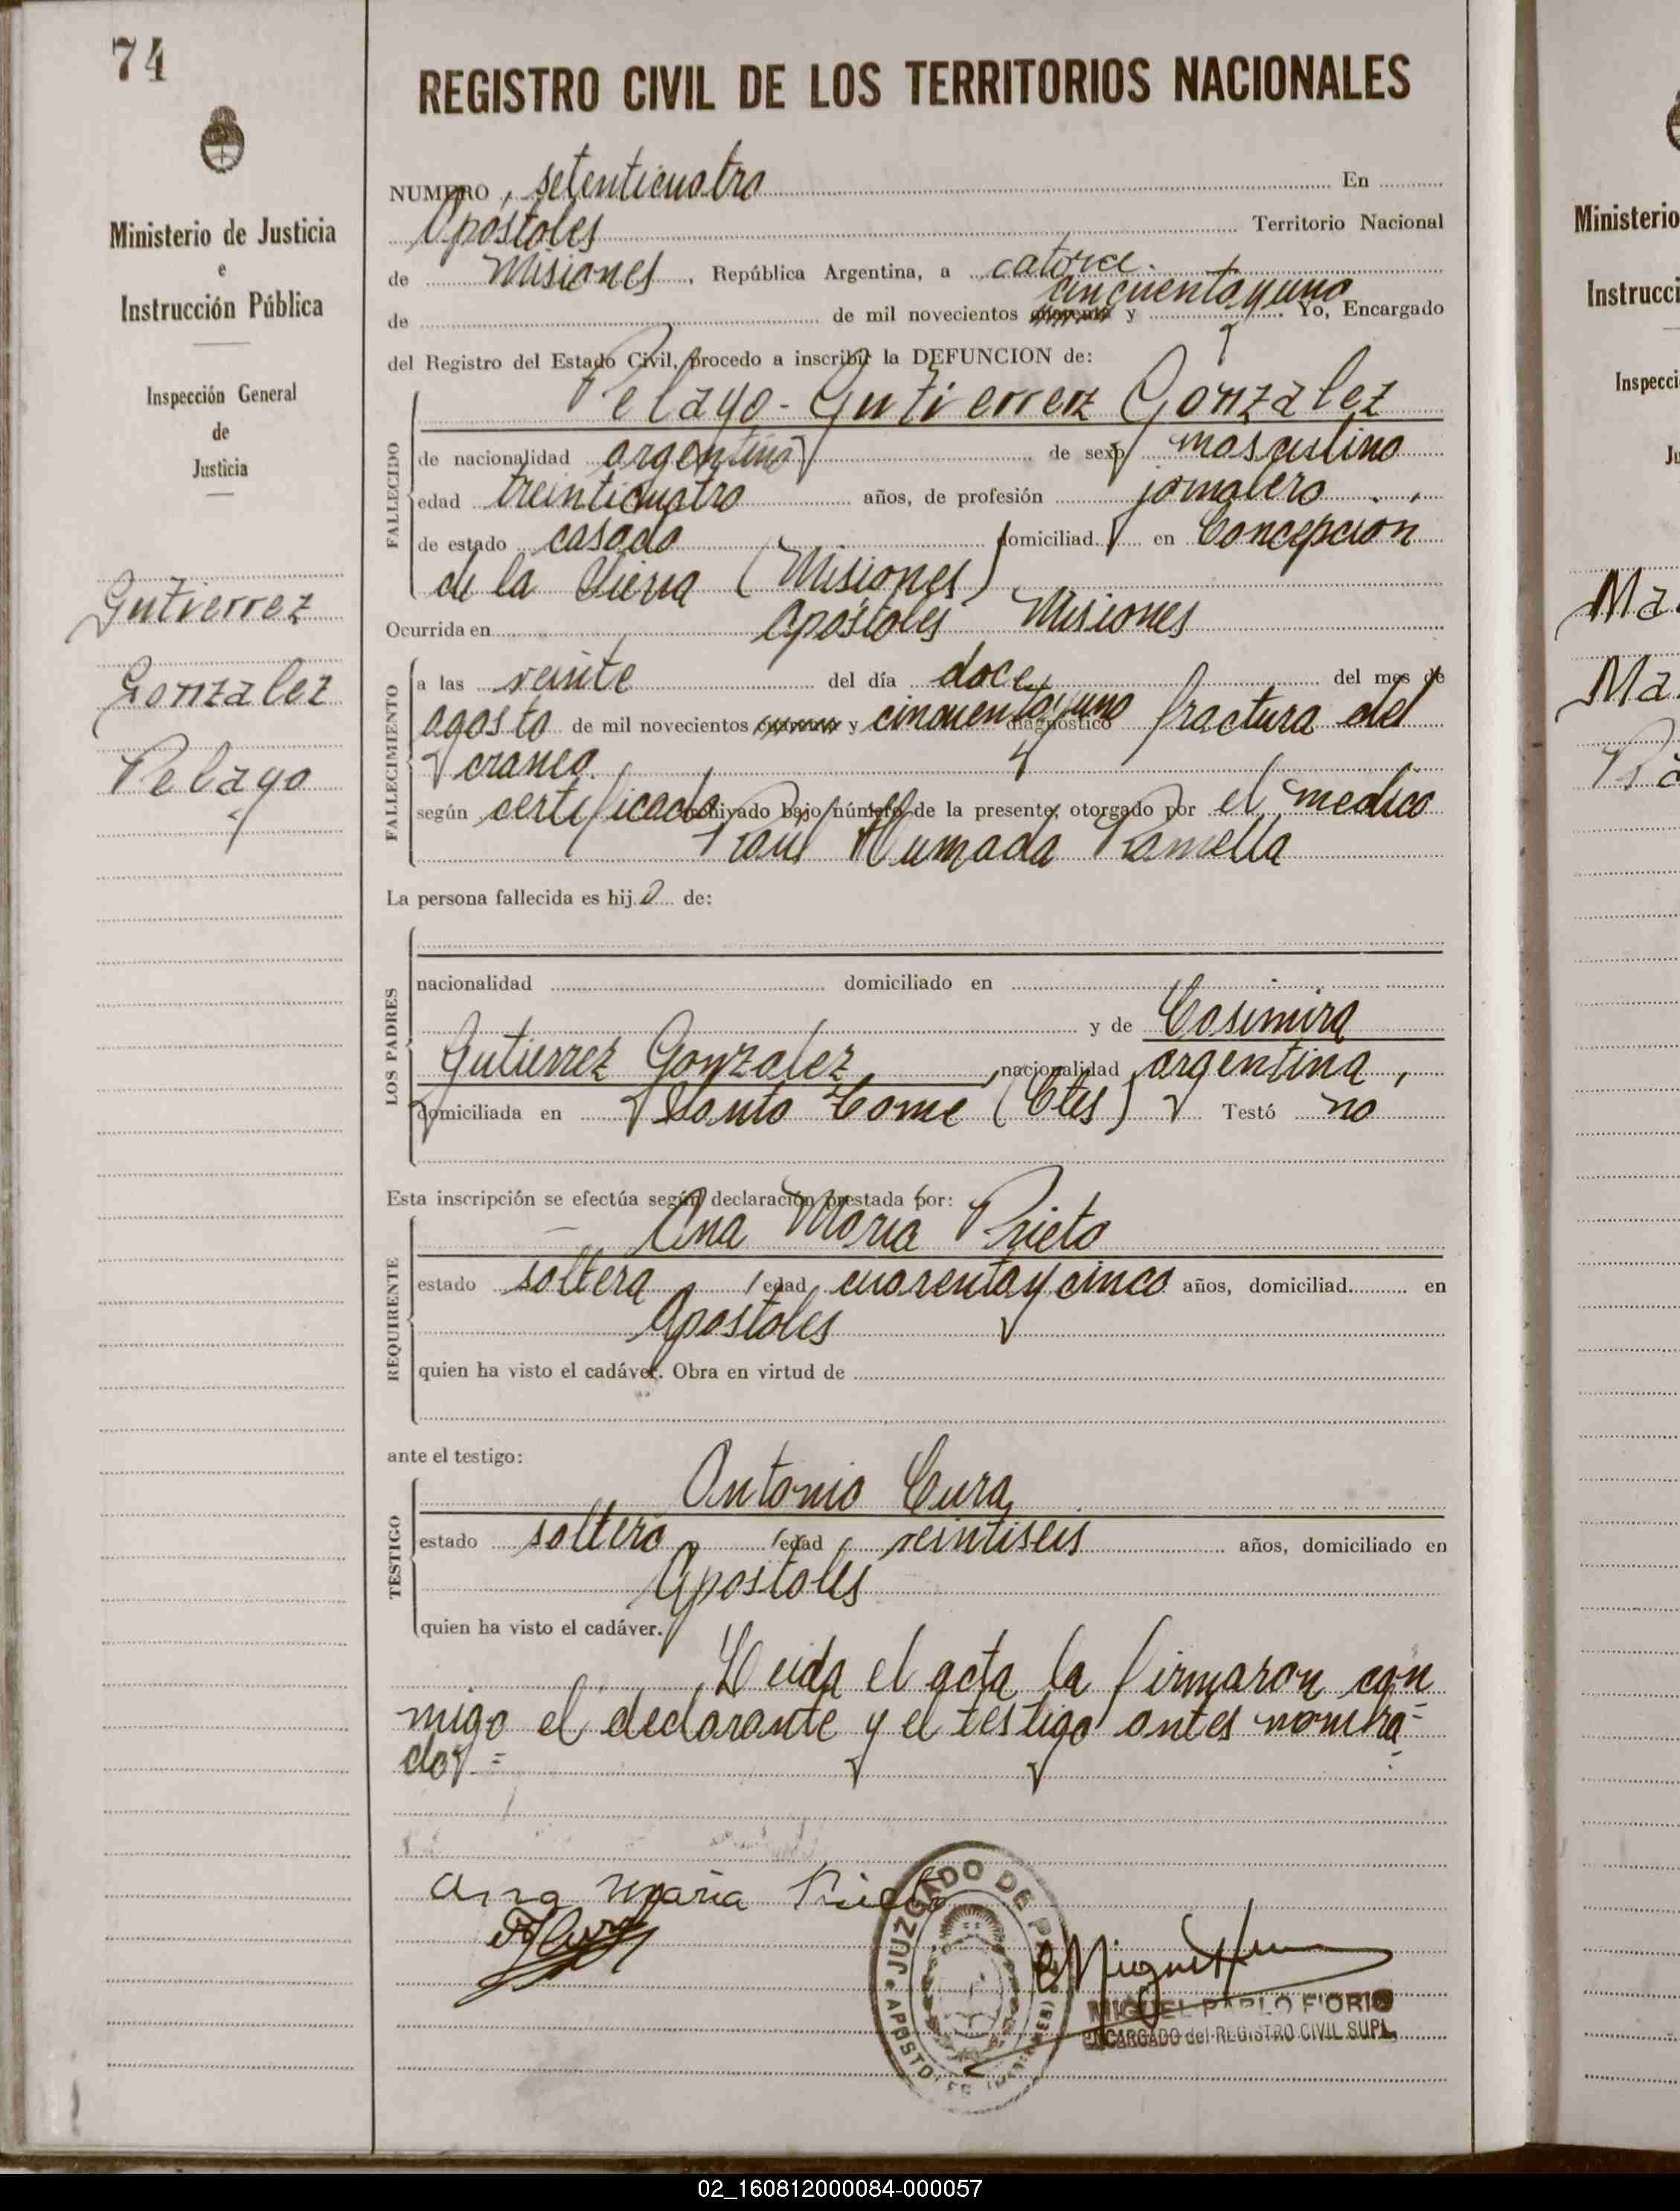 74
Ministerio de Justicia
e
Instrucción Pública
Inspección General
de
Justicia
Gutierrez
Gonzalez
Pelayo
REGISTRO CIVIL DE LOS TERRITORIOS NACIONALES
NUMERO, setenticuatro En
Apóstoles Territorio Nacional
de Misiones, República Argentina, a catorce
cincuenta y uno
de de mil novecientos y . Yo, Encargado
del Registro del Estado Civil, procedo a inscribir la DEFUNCION de:
Pelayo - Gutierrez Gonzalez
FALLECIDO
de nacionalidad argentina de sexo masculino
edad treinticuatro años, de profesión jornalero
de estado casado domiciliad en Concepcion
de la Sierra (Misiones)
Ocurrida en Apóstoles Misiones
FALLECIMIENTO
a las veinte del día doce del mes de
agosto de mil novecientos y cincuenta y uno diagnóstico fractura del
craneo.
según certificado archivado bajo número de la presente, otorgado por el medico
Raul Humada Ramella
La persona fallecida es hijo de:
LOS PADRES
nacionalidad domiciliado en
y de Casimira
Gutierrez Gonzalez, nacionalidad argentina,
domiciliada en Santo Tome (Ctes) Testó no
Esta inscripción se efectúa según declaración prestada por:
Ana Maria Prieto
REQUIRENTE
estado soltera edad cuarenta y cinco años, domiciliad en
Apostoles
quien ha visto el cadáver. Obra en virtud de
ante el testigo:
Antonio Cura
TESTIGO
estado soltero edad veintiseis años, domiciliado en
Apostoles
quien ha visto el cadáver.
Leida el acta la firmaron con
migo el declarante y el testigo antes nombra-
dos. =
Ana Maria Prieto
JUZGADO DE PAZ
APOSTOLES (MISIONES)
MIGUEL PABLO FIORIO
ENCARGADO del REGISTRO CIVIL SUPL.
Ministerio
Instrucci
Inspecci
Ju
Ma
Ma
02_160812000084-000057